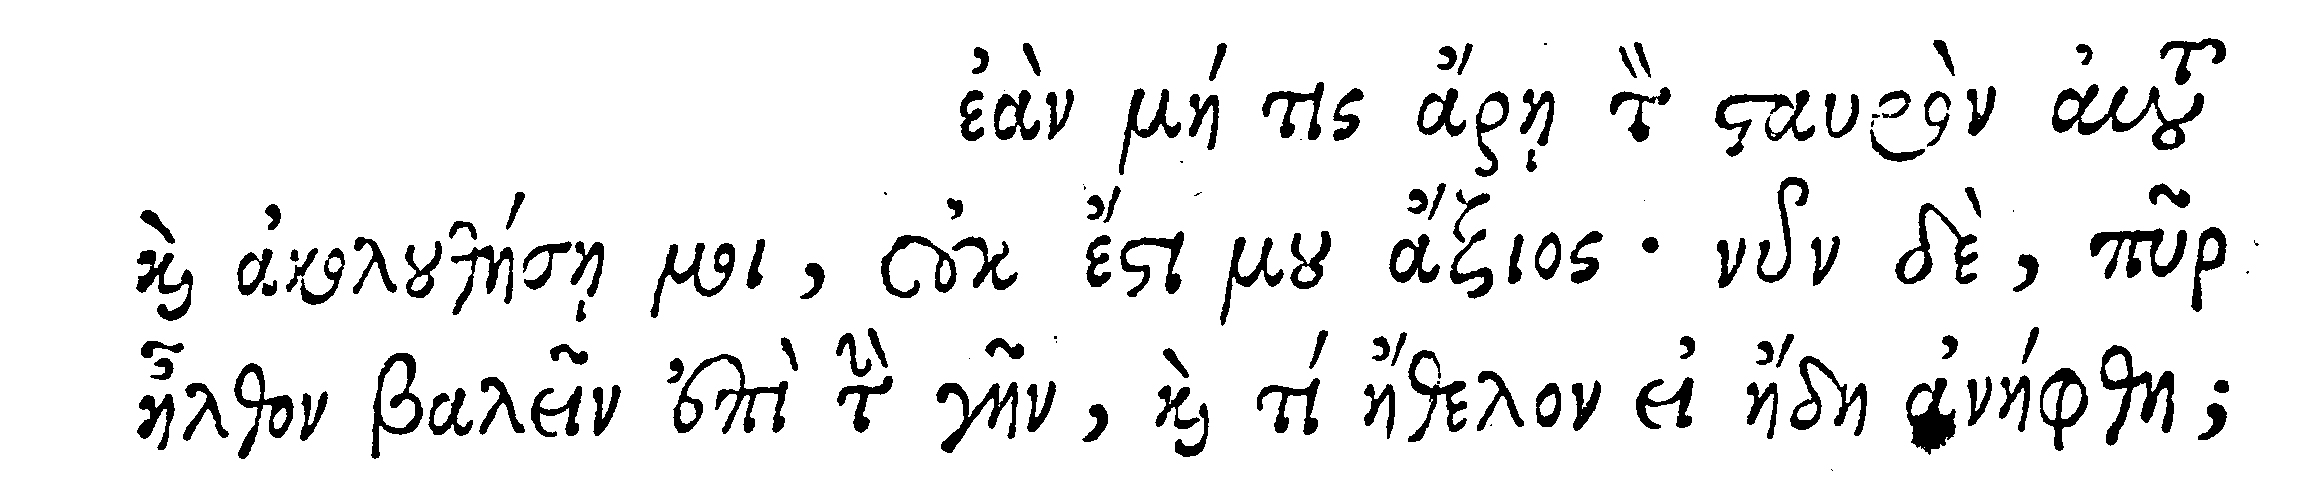 ἐὰν μή τις ἄρῃ τὸν σταυρὸν ἀυτοῦ
καὶ ἀκολουθήσῃ μοι, οὐκ ἔστι μου ἄξιος · νῦν δὲ, πῦρ
ἦλθον βαλεῖν ἐπὶ τὴν γῆν, καὶ τί ἤθελον εἰ ἤδη ἀνήφθη;